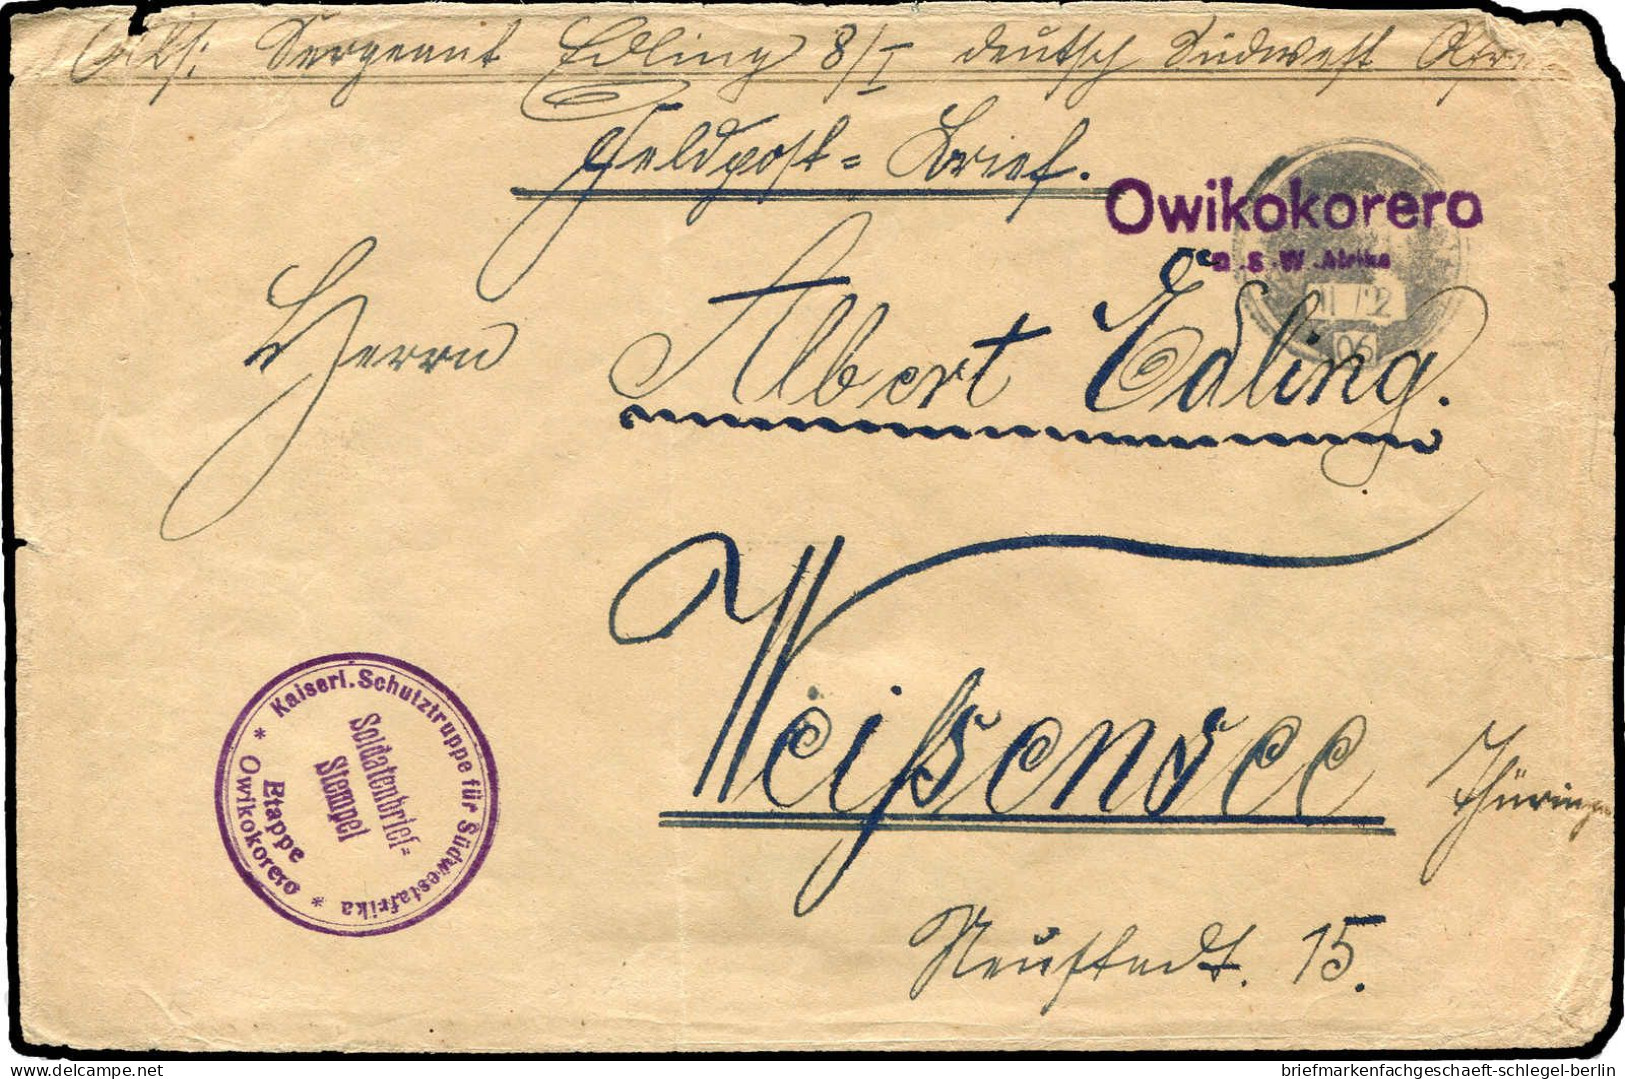 Abs: Sergeant Edling 8/I deutsch Südwest Afr
Feldpost= Brief.
Owikokorero
D.S.W. Afrika
11/12
06
Herrn Albert Edling.
Weißensee
Thüringen
Neustadt. 15.
* Kaiserl. Schutztruppe für Südwestafrika *
Soldatenbrief=
Stempel
Etappe
Owikokorero
briefmarkenfachgeschaeft-schlegel-berlin